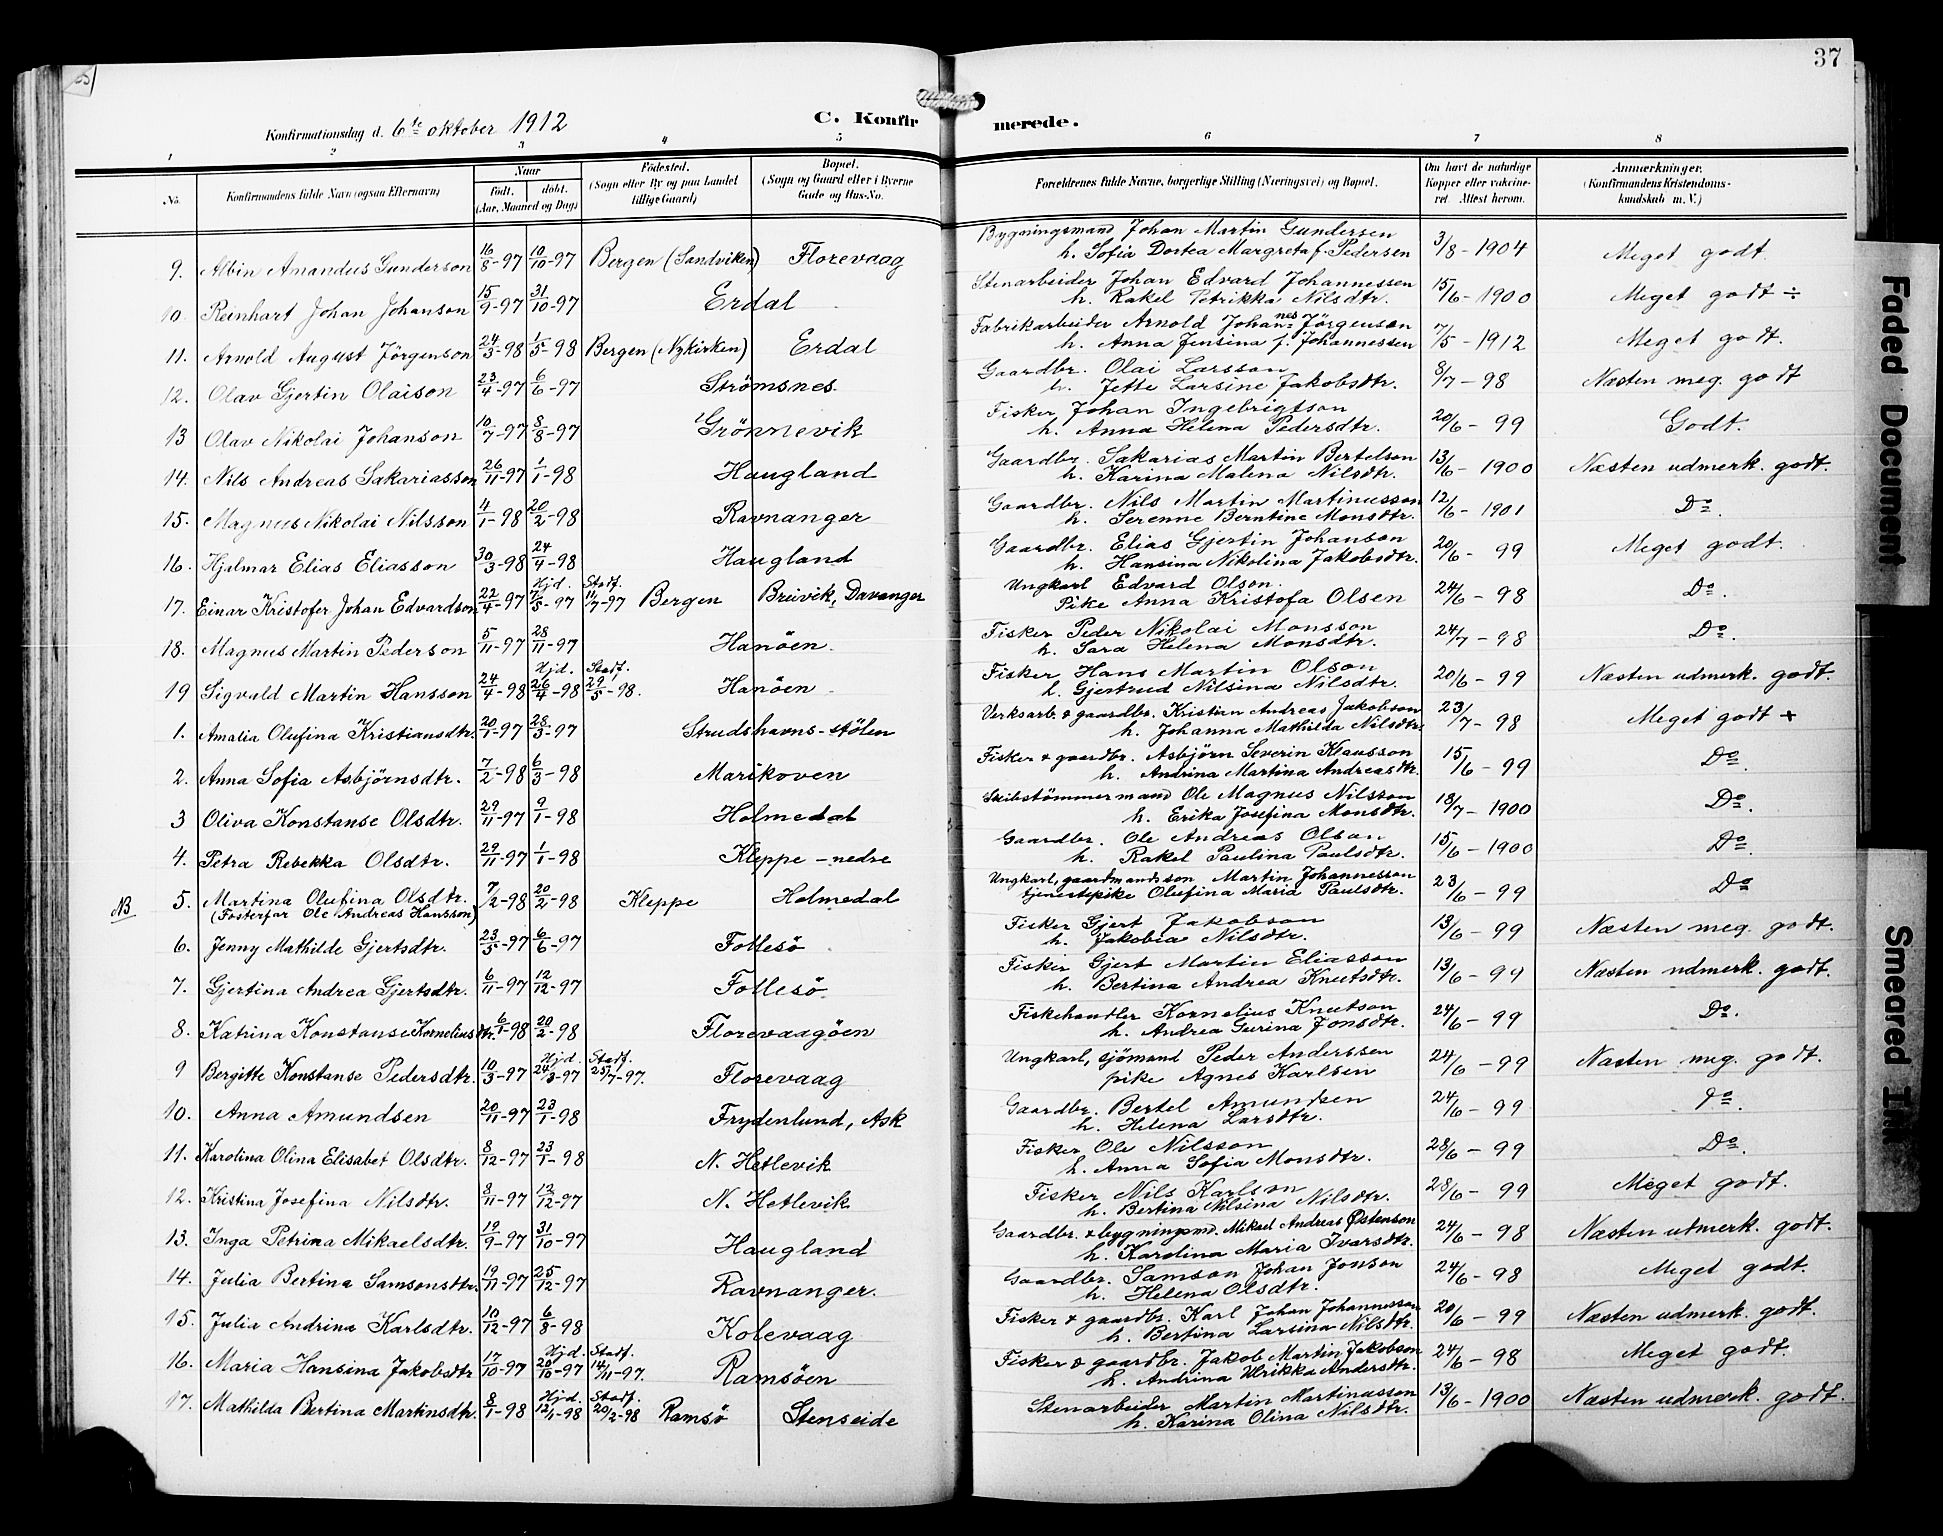 37
Konfirmationsdag d. 6te oktober 1912
C. Konfirmerede.
1 2 3 4 5 6 7 8
No. Konfirmandens fulde Navn (ogsaa Efternavn) Naar født. døbt. (Aar, Maaned og Dag) Fødested. (Sogn eller By og paa Landet tillige Gaard) Bopæl. (Sogn og Gaard eller i Byerne Gade og Hus-No. Forældrenes fulde Navne, borgerlige Stilling (Næringsvei) og Bopæl. Om havt de naturlige Kopper eller vakcineret. Attest herom. Anmærkninger. (Konfirmandens Kristendomskundskab m. V.)
9. Albin Amandus Gunderson 16/8-97 10/10-97 Bergen (Sandviken) Florevaag Bygningsmand Johan Martin Gundersen 3/8-1904 Meget godt.
h. Sofia Dortea Margreta f. Pedersen
10. Reinhart Johan Johanson 15/9-97 31/10-97 Erdal Stenarbeider Johan Edvard Johannessen 15/6-1900 Meget godt ÷
h. Rakel Petrikka Nilsdtr.
11. Arnold August Jörgenson 24/3-98 1/5-98 Bergen (Nykirken) Erdal Fabrikarbeider Arnold Johannes Jörgenson 7/5-1912 Meget godt.
h. Anna Jensina f. Johannessen
12. Olav Gjertin Olaison 23/4-97 6/6-97 Strömsnes Gaardbr. Olai Larsson 8/7-98 Næsten meg. godt
h. Jette Larsine Jakobsdtr.
13 Olav Nikolai Johanson 10/7-97 8/8-97 Grönnevik Fisker Johan Ingebrigtson 20/6-99 Godt.
h. Anna Helena Pedersdtr.
14. Nils Andreas Sakariasson 26/11-97 1/1-98 Haugland Gaardbr. Sakarias Martin Bertelson 13/6-1900 Næsten udmerk. godt.
h. Karina Malena Nilsdtr.
15. Magnus Nikolai Nilsson 4/1-98 20/2-98 Ravnanger Gaardbr. Nils Martin Martinusson 12/6-1901 Do.
h. Serenne Berntine Monsdtr.
16. Hjalmar Elias Eliasson 30/3-98 24/4-98 Haugland Gaardbr. Elias Gjertin Johanson 20/6-99 Meget godt.
h. Hansina Nikolina Jakobsdtr.
17. Einar Kristofer Johan Edvardson 22/4-97 Hjd. 7/5-97 Stadf. 11/7-97 Bergen Breivik, Davanger Ungkarl Edvard Olson. 24/6-98 Do.
Pike Anna Kristofa Olsen
18. Magnus Martin Pederson 5/11-97 28/11-97 Hanöen. Fisker Peder Nikolai Monsson 24/7-98 Do.
h. Sara Helena Monsdtr.
19 Sigvald Martin Hansson 24/4-98 Hjd. 26/4-98 Stadf. 29/5-98. Hanöen Fisker Hans Martin Olson 20/6-99 Næsten udmerk. godt.
h. Gjertrud Nilsina Nilsdtr.
1. Amalia Olufina Kristiansdtr. 20/1-97 28/3-97 Strudshavns-stölen Verksarb. & gaardbr. Kristian Andreas Jakobson 23/7-98 Meget godt +
h. Johanna Mathilda Nilsdtr.
2. Anna Sofia Asbjörnsdtr. 7/2-98 6/3-98 Marikoven Fisker & gaardbr. Asbjörn Severin Klausson 15/6-99 Do.
h. Andrina Martina Andreasdtr.
3 Oliva Konstanse Olsdtr. 29/11-97 9/1-98 Holmedal Skibstömmermand Ole Magnus Nilsson 18/7-1900 Do.
h. Erika Josefina Monsdtr.
4. Petra Rebekka Olsdtr. 29/11-97 1/1-98 Kleppe-nedre Gaardbr. Ole Andreas Olson 15/6-1900 Do.
h. Rakel Paulina Paulsdtr.
NB 5. Martina Olufina Olsdtr. 7/2-98 20/2-98 Kleppe Holmedal Ungkarl, gaardmandsson Martin Johannesson 23/6-99 Do
(Fosterfar Ole Andreas Hansson) tjenestepike Olufina Maria Paulsdtr.
6. Jenny Mathilde Gjertsdtr. 23/5-97 6/6-97 Follesö Fisker Gjert Jakobson 13/6-99 Næsten meg. godt.
h. Jakobia Nilsdtr.
7. Gjertina Andrea Gjertsdtr. 6/11-97 12/12-97 Follesö. Fisker Gjert Martin Eliasson 13/6-99 Næsten udmerk. godt.
h. Bertina Andrea Knutsdtr.
8. Katrina Konstanse Korneliusdtr. 6/1-98 20/2-98 Florevaagöen Fiskehandler Kornelius Knutson 24/6-99 Do.
h. Andrea Gurina Jonsdtr.
9 Bergitte Konstanse Pedersdtr. 10/3-97 Hjd. 24/3-97 Stadf. 25/7-97. Florevaag Ungkarl, sjömand Peder Anderssen 24/6-99 Næsten meg. godt.
pike Agnes Karlsen
10. Anna Amundsen 20/11-97 23/1-98 Frydenlund, Ask Gaardbr. Bertel Amundsen 24/6-99 Do.
h. Helena Larsdtr.
11. Karolina Olina Elisabet Olsdtr. 8/12-97 23/1-98 N. Hetlevik Fisker Ole Nilsson 28/6-99 Do.
h. Anna Sofia Monsdtr.
12. Kristina Josefina Nilsdtr. 8/11-97 12/12-97 N. Hetlevik Fisker Nils Karlson 28/6-99 Meget godt.
h. Bertina Nilsina Nilsdtr.
13. Inga Petrina Mikaelsdtr. 19/9-97 31/10-97 Haugland Gaardbr. & bygningsmd. Mikael Andreas Østenson 24/6-98 Næsten utmerk. godt.
h. Karolina Maria Ivarsdtr.
14. Julia Bertina Samsonsdtr. 19/11-97 25/12-97 Ravnanger. Gaardbr. Samson Johan Jonson 24/6-98 Meget godt.
h. Helena Olsdtr.
15. Julia Andrina Karlsdtr. 10/12-97 6/8-98 Kolevaag Fisker & gaardbr. Karl Johan Johannesson 20/6-99 Næsten udmerk. godt.
h. Bertina Larsina Nilsdtr.
16. Maria Hansina Jakobsdtr 17/10-97 Hjd. 20/10-97 Stadf. 14/11-97. Ramsöen Fisker & gaardbr. Jakob Martin Jakobson 24/6-98 Meget godt.
h. Andrina Ulrikka Andersdtr.
17. Mathilda Bertina Martinsdtr. 8/1-98 Hjd. 12/1-98 Stadf. 20/2-98 Ramsö Stenseide Stenarbeider Martin Martinusson 13/6-1900 Næsten udmerk. godt.
h. Karina Olina Nilsdtr.
Faded Document
Smeared Ink